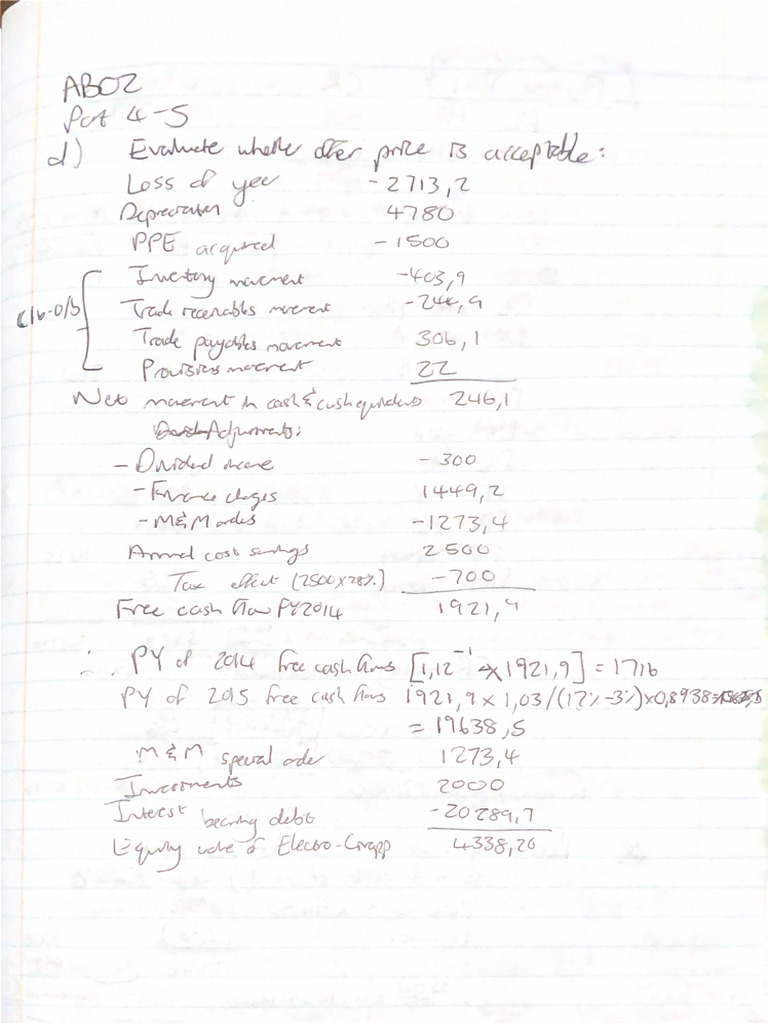 ABO2
Part 4-5
d) Evaluate whether offer price is acceptable:
Loss of year -2713,2
Depreciation 4780
PPE acquired -1500
Inventory movement -403,9
c/b-o/b Trade receivables movement -244,9
Trade payables movement 306,1
Provisions movement 22
Net movement in cash & cash equivalents 246,1
Adjustments:
- Dividend income -300
- Finance charges 1449,2
- M&M orders -1273,4
Annual cost savings 2500
Tax effect (2500x28%) -700
Free cash flow FY2014 1921,9
∴ PV of 2014 free cash flows [1,12⁻¹ x 1921,9] = 1716
PV of 2015 free cash flows 1921,9 x 1,03/(12%-3%) x 0,8938
= 19638,5
M&M special order 1273,4
Investments 2000
Interest bearing debt -20289,7
Equity value of Electro-Grapp 4338,20